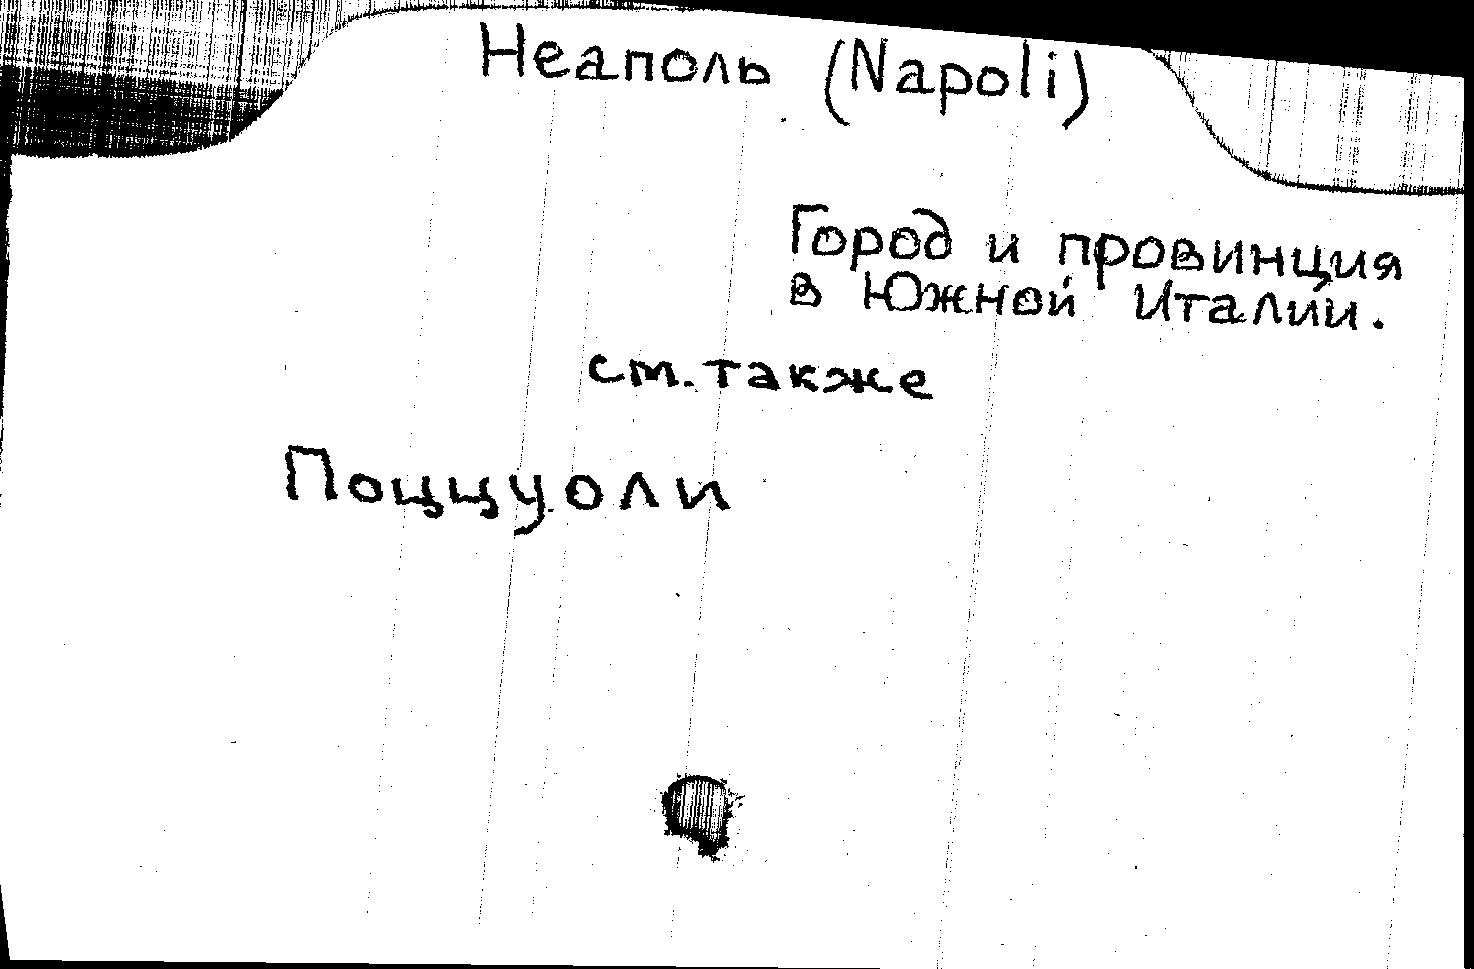 Неаполь (Napoli)
Город и провинция
в Южной Италии.
см. также
Поццуоли